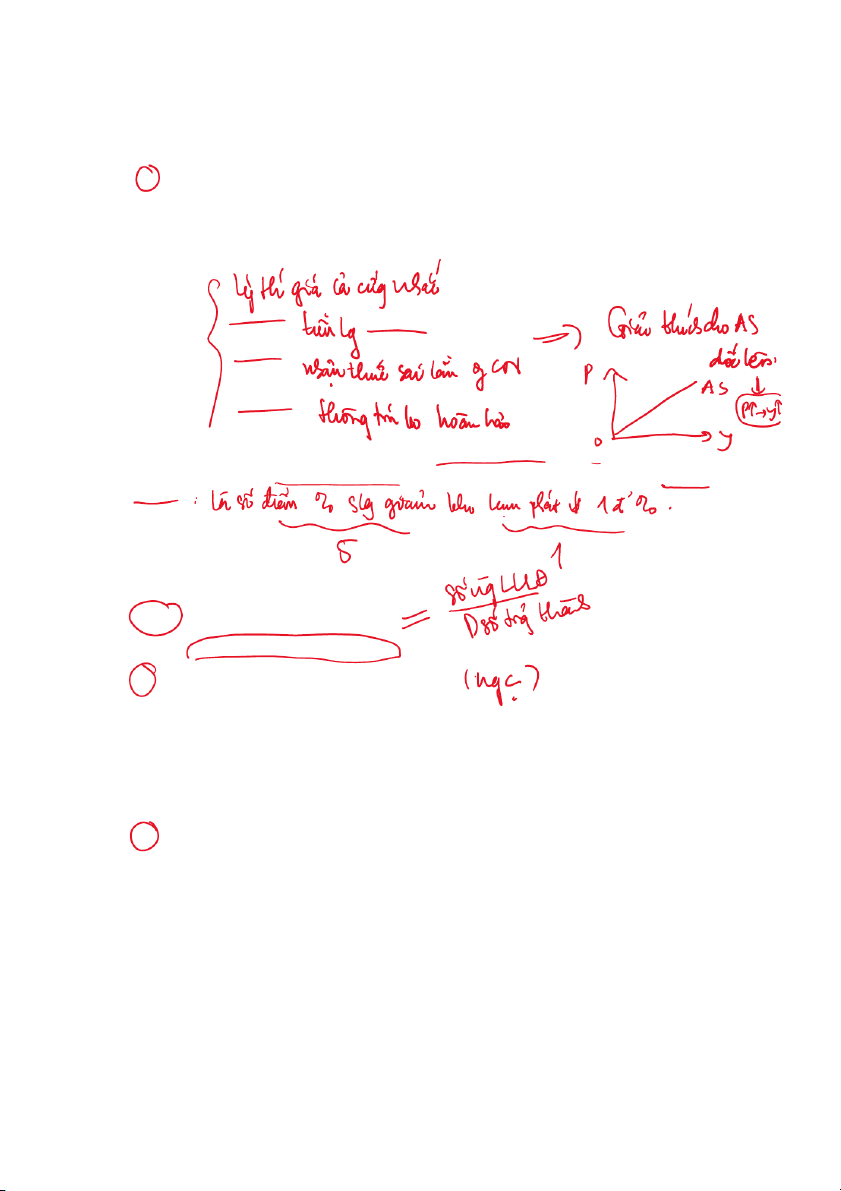 lý th' giá cả cứng nhắc
tiền lg
nhận thức sai lầm g CN
thông tin ko hoàn hảo
=) Giải thích cho AS
dốc lên.
P
AS
P↑→y↑
0
y
: là số điểm % slg giảm khi lạm phát ↓ 1 đ' %.
5
1
= Số ng LLLĐ
D số trg thành
(ng c)